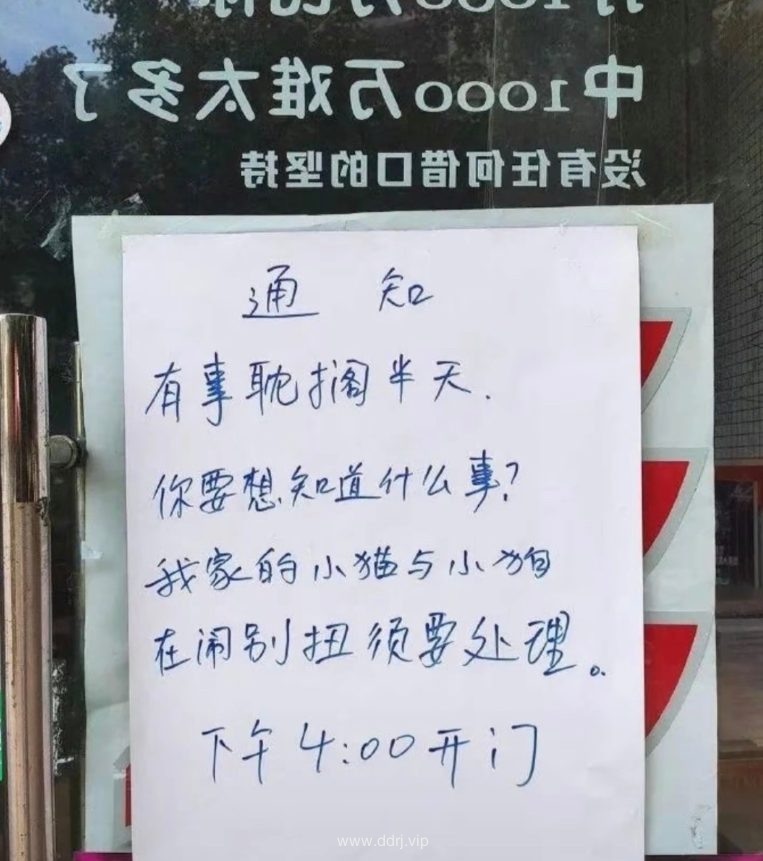 中1000万难太多了
没有任何借口的坚持
通 知
有事耽搁半天.
你要想知道什么事?
我家的小猫与小狗
在闹别扭须要处理。
下午4:00开门
www.ddrj.vip